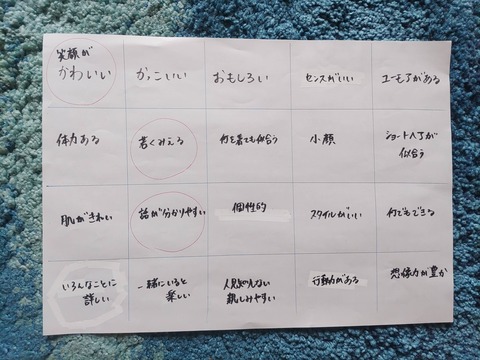 笑顔が
かわいい
かっこいい
おもしろい
センスがいい
ユーモアがある
体力ある
若くみえる
何を着ても似合う
小顔
ショートヘアが
似合う
肌がきれい
話が分かりやすい
個性的
スタイルがいい
何でもできる
いろんなことに
詳しい
一緒にいると
楽しい
人見知りしない
親しみやすい
行動力がある
想像力が豊か